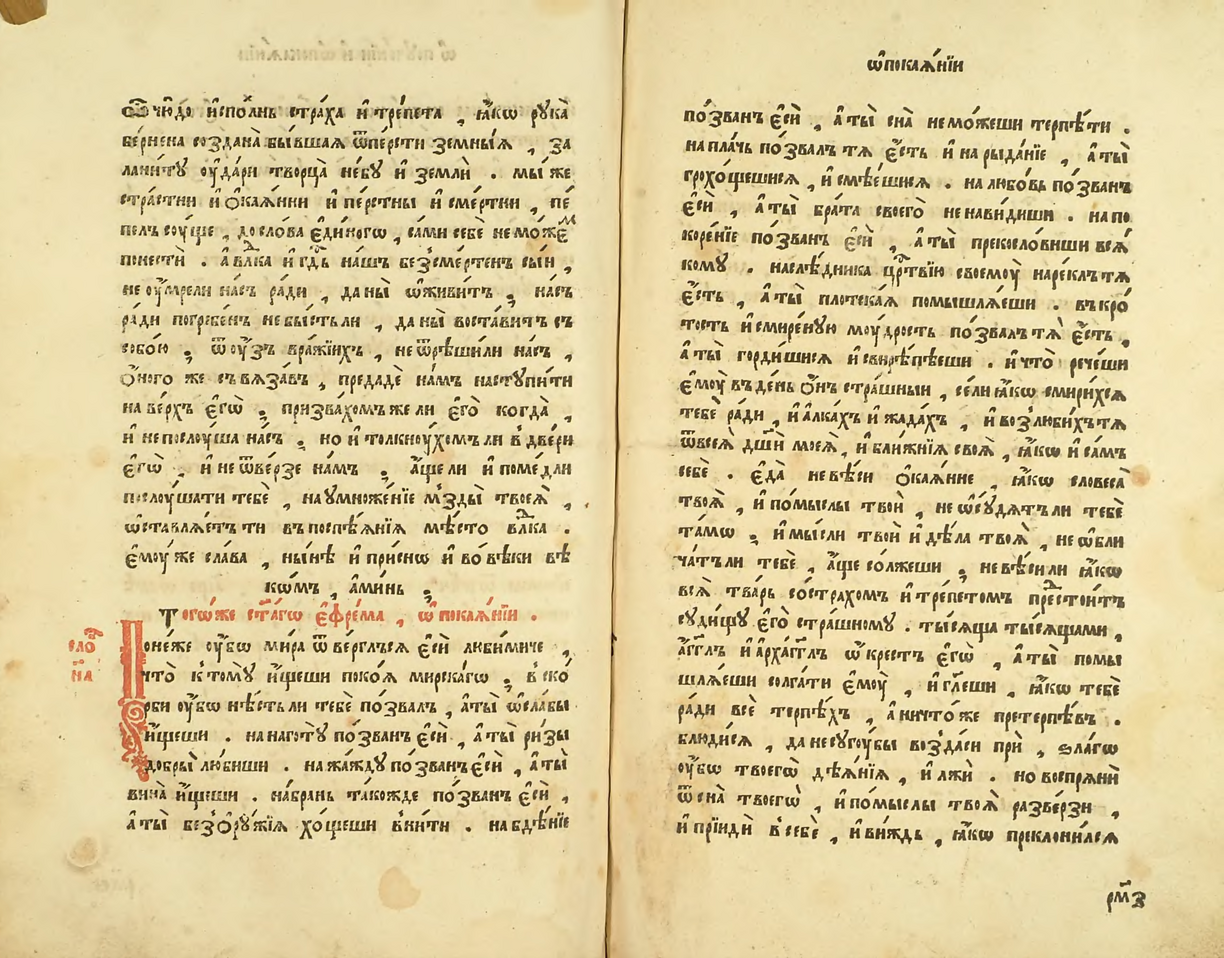 Ѽ чю́до и҆спо́лнь стра́ха и҆ тре́пета , ꙗ҆́кѡ рꙋка̀
бе́рнена созда́на̀ бы́вшаѧ ѿпе́рсти земны́ѧ , за
лани́тꙋ ᲂу҆да́ри творца̀ не́бꙋ и҆ землѝ . мы́ же
стра́стнии и҆ ѻ҆каѧ́нии и҆ пе́рстны и҆ сме́ртнии , пе́
пелъ сᲂу́ще , до сло́ва є҆ди́ногѡ , са́ми себѐ не мо́жеⷨ
понестѝ . а҆ влⷣка и҆ гдⷭ҇ь на́шъ безсме́ртенъ сы́и ,
не ᲂу҆́мрели на́съ ра́ди , да ны̀ ѡ҆живи́тъ ; на́съ
ра́ди погребе́нъ не бы́сть ли , да ны̀ воста́витъ съ
собо́ю ; ѿ ᲂу҆́зъ вра́жїихъ , не ѿрѣши́ли на́съ ,
ѻ҆́ного же съвѧза́въ , предадѐ на́мъ настꙋпи́ти
на ве́рхъ є҆гѡ̀ ; призва́хомъ же ли є҆го̀ когда̀ ,
и҆ не послᲂу́ша на́съ ; но и҆ толкнᲂу́хомъ ли в две́ри
є҆гѡ̀ , и҆ не ѿве́рзе на́мъ ; а҆́ще ли и҆ поме́дли
послᲂу́шати тебѐ , на ᲂу҆множе́нїе мъзды̀ твоеѧ̀ ,
ѡ҆ставлѧ́етъ ти въ поспѣѧ́нїѧ мѣ́сто влⷣка .
є҆мᲂу́ же сла́ва , ны́нѣ и҆ при́снѡ и҆ во вѣ́ки вѣ́
кѡмъ , а҆ми́нь ;
Тогѡ́же ст҃а́гѡ є҆фре́ма , ѡ҆ покаѧ́нїи .
сло́ⷡ
н҃а
Поне́же ᲂу҆́бѡ ми́ра ѿве́рглъсѧ є҆сѝ люби́миче ,
что̀ к томꙋ̀ и҆́щеши поко́ѧ мирска́гѡ ; в ско́
рби ᲂу҆́бѡ нѣ́сть ли тебѐ позва́лъ , а҆ ты̀ ѡ҆сла́бы
и҆́щеши . на наготꙋ̀ по́званъ є҆сѝ , а҆ ты̀ ри́зы
добры̀ лю́биши . на жа́ждꙋ по́званъ є҆сѝ , а҆ ты̀
вина̀ и҆́щеши . на́ брань тако́жде по́званъ є҆сѝ ,
а҆ ты̀ безо҆рꙋ́жїѧ хо́щеши вни́ти . на бдѣ́нїе
ѡ҆ покаѧ́нїи
по́званъ є҆сѝ , а҆ ты̀ сна̀ не мо́жеши терпѣ́ти .
на пла́чь позва́лъ тѧ є҆́сть и҆ на рыда́нїе , а҆ ты̀
грохо́щешисѧ , и҆ смѣе́шисѧ . на любо́вь по́званъ
є҆сѝ , а҆ ты̀ бра́та своего̀ ненави́диши . на по
коре́нїе по́званъ є҆сѝ , а҆ ты̀ прекосло́виши всѧ́
комꙋ . наслѣ́дника црⷭ҇твїю своемᲂу̀ наре́клъ тѧ
є҆́сть , а҆ ты̀ пло́тскаѧ помышлѧ́еши . въ кро́
тость и҆ смире́нꙋю мᲂу́дрость позва́лъ тѧ̀ є҆́сть ,
а҆ ты̀ горди́шисѧ и҆ свирѣ́пѣеши . и҆ что̀ рече́ши
є҆мᲂу̀ въ де́нь ѻ҆́нъ стра́шныи , се́ли ꙗ҆́кѡ смири́хсѧ
тебѐ ра́ди , и҆ а҆лка́хъ и҆ жада́хъ , и҆ возлюби́хъ тѧ
ѿ всеѧ̀ дш҃и моеѧ̀ , и҆ бли́жнїѧ своѧ̀ , ꙗ҆́кѡ и҆ са́мъ
себѐ . є҆да̀ не вѣ́си ѻ҆каѧ́нне , ꙗ҆́кѡ словеса̀
твоѧ̀ , и҆ по́мыслы твоѝ , не ѡ҆сꙋ́дѧтъ ли тебѐ
та́мѡ ; и҆ мы́сли твоѝ и҆ дѣла̀ твоѧ̀ , не ѡ҆бли
ча́тъ ли тебѐ , а҆́ще со́лжеши ; не вѣ́си ли ꙗ҆́кѡ
всѧ̀ тва́рь со стра́хомъ и҆ тре́петомъ прⷣестои́тъ
сꙋди́щꙋ є҆го̀ стра́шномꙋ . ты́сѧща ты́сѧщами ,
а҆́гг҃лъ и҆ а҆рха́гг҃лъ ѡ҆́крестъ є҆гѡ̀ , а҆ ты̀ помы
шлѧ́еши солга́ти є҆мᲂу̀ , и҆ гл҃еши , ꙗ҆́кѡ тебѐ
ра́ди всѐ терпѣ́хъ , а҆ ничто́же претерпѣ́въ .
блюди́сѧ , да не сᲂугᲂу́бы возда́си прѝ , ѕла́гѡ
ᲂу҆́бѡ твоегѡ̀ дѣѧ́нїѧ , и҆ лжѝ . но воспрѧнѝ
ѿ сна̀ твоегѡ̀ , и҆ по́мыслы твоѧ̀ разве́рзи ,
и҆ прїидѝ в себѐ , и҆ ви́ждь , ꙗ҆́кѡ приклони́лсѧ
рм҃з